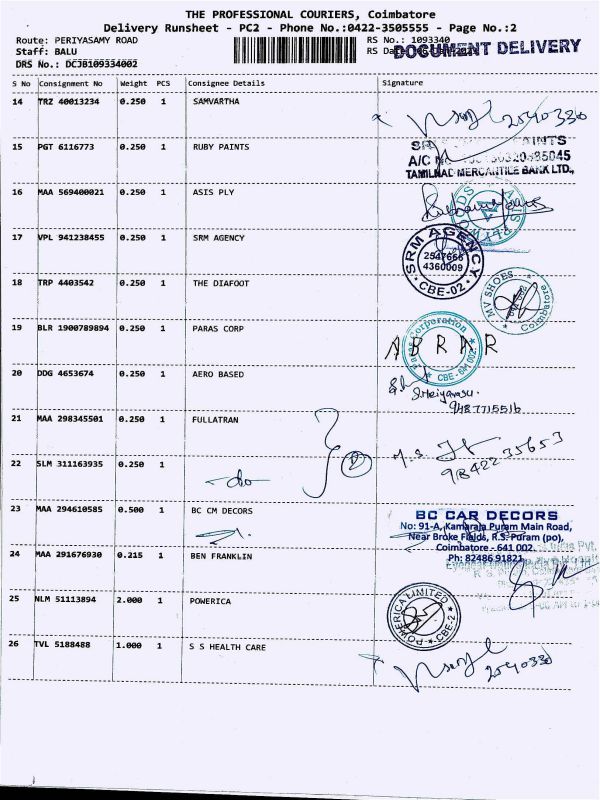 THE PROFESSIONAL COURIERS, Coimbatore
Delivery Runsheet - PC2 - Phone No.:0422-3505555 - Page No.:2
Route: PERIYASAMY ROAD
RS No.: 1093340
Staff: BALU
RS Da
DOCUMENT DELIVERY
DRS No.: DCJB109334002
S No Consignment No Weight PCS Consignee Details Signature
14 TRZ 40013234 0.250 1 SAMVARTHA
2540330
15 PGT 6116773 0.250 1 RUBY PAINTS
AINTS
A/C N
TAMILNAD MERCANTILE BANK LTD.,
16 MAA 569400021 0.250 1 ASIS PLY
17 VPL 941238455 0.250 1 SRM AGENCY
SRM AGENCY
2547666
4360009
CBE-02
18 TRP 4403542 0.250 1 THE DIAFOOT
MV SHOES
Coimbatore
19 BLR 1900789894 0.250 1 PARAS CORP
Corporation
ABRAR
CBE-641 002
20 DDG 4653674 0.250 1 AERO BASED
9487715516
21 MAA 298345501 0.250 1 FULLATRAN
22 SLM 311163935 0.250 1
-do-
2
9842235653
23 MAA 294610585 0.500 1 BC CM DECORS
BC CAR DECORS
No: 91-A, Kamaraja Puram Main Road,
Near Broke Fields, R.S. Puram (po),
Coimbatore - 641 002.
Ph: 82486 91821
24 MAA 291676930 0.215 1 BEN FRANKLIN
25 NLM 51113894 2.000 1 POWERICA
POWERICA LIMITED
CBE-2
26 TVL 5188488 1.000 1 S S HEALTH CARE
2540330